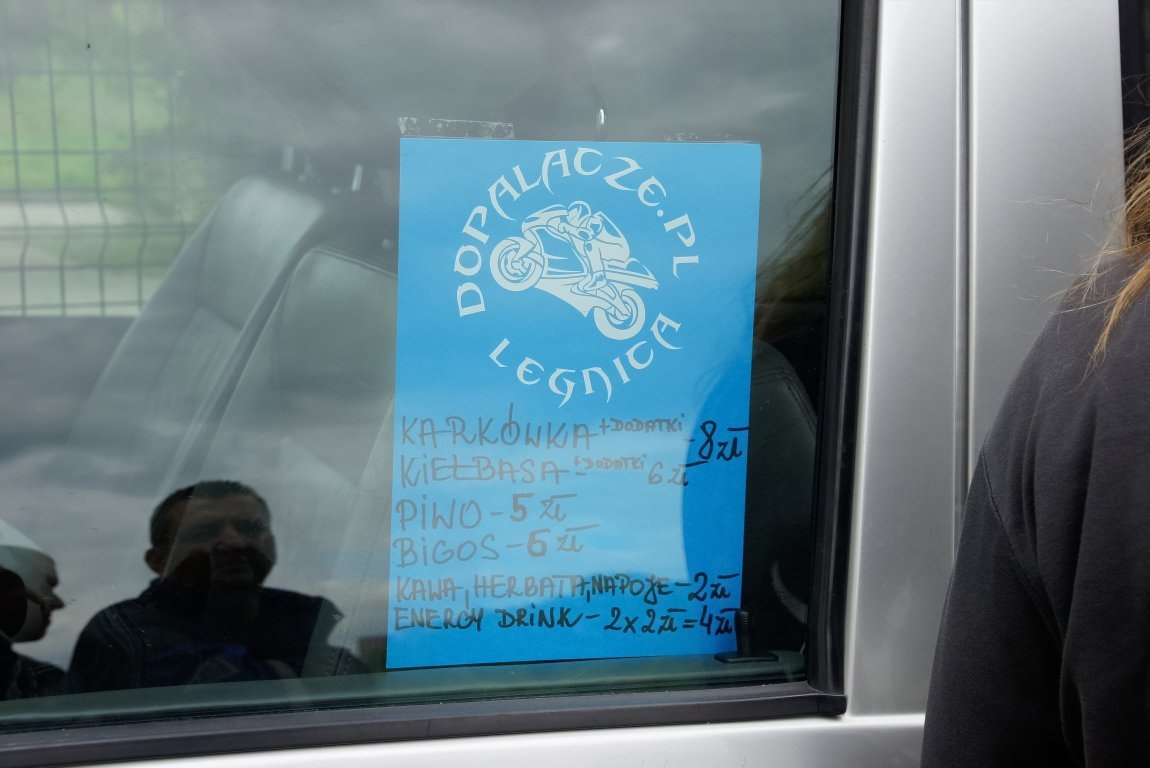 DOPALACZE.PL
LEGNICA
KARKÓWKA +DODATKI - 8 zł
KIEŁBASA +DODATKI - 6 zł
PIWO - 5 zł
BIGOS - 6 zł
KAWA, HERBATA, NAPOJE - 2 zł
ENERGY DRINK - 2 x 2 zł = 4 zł